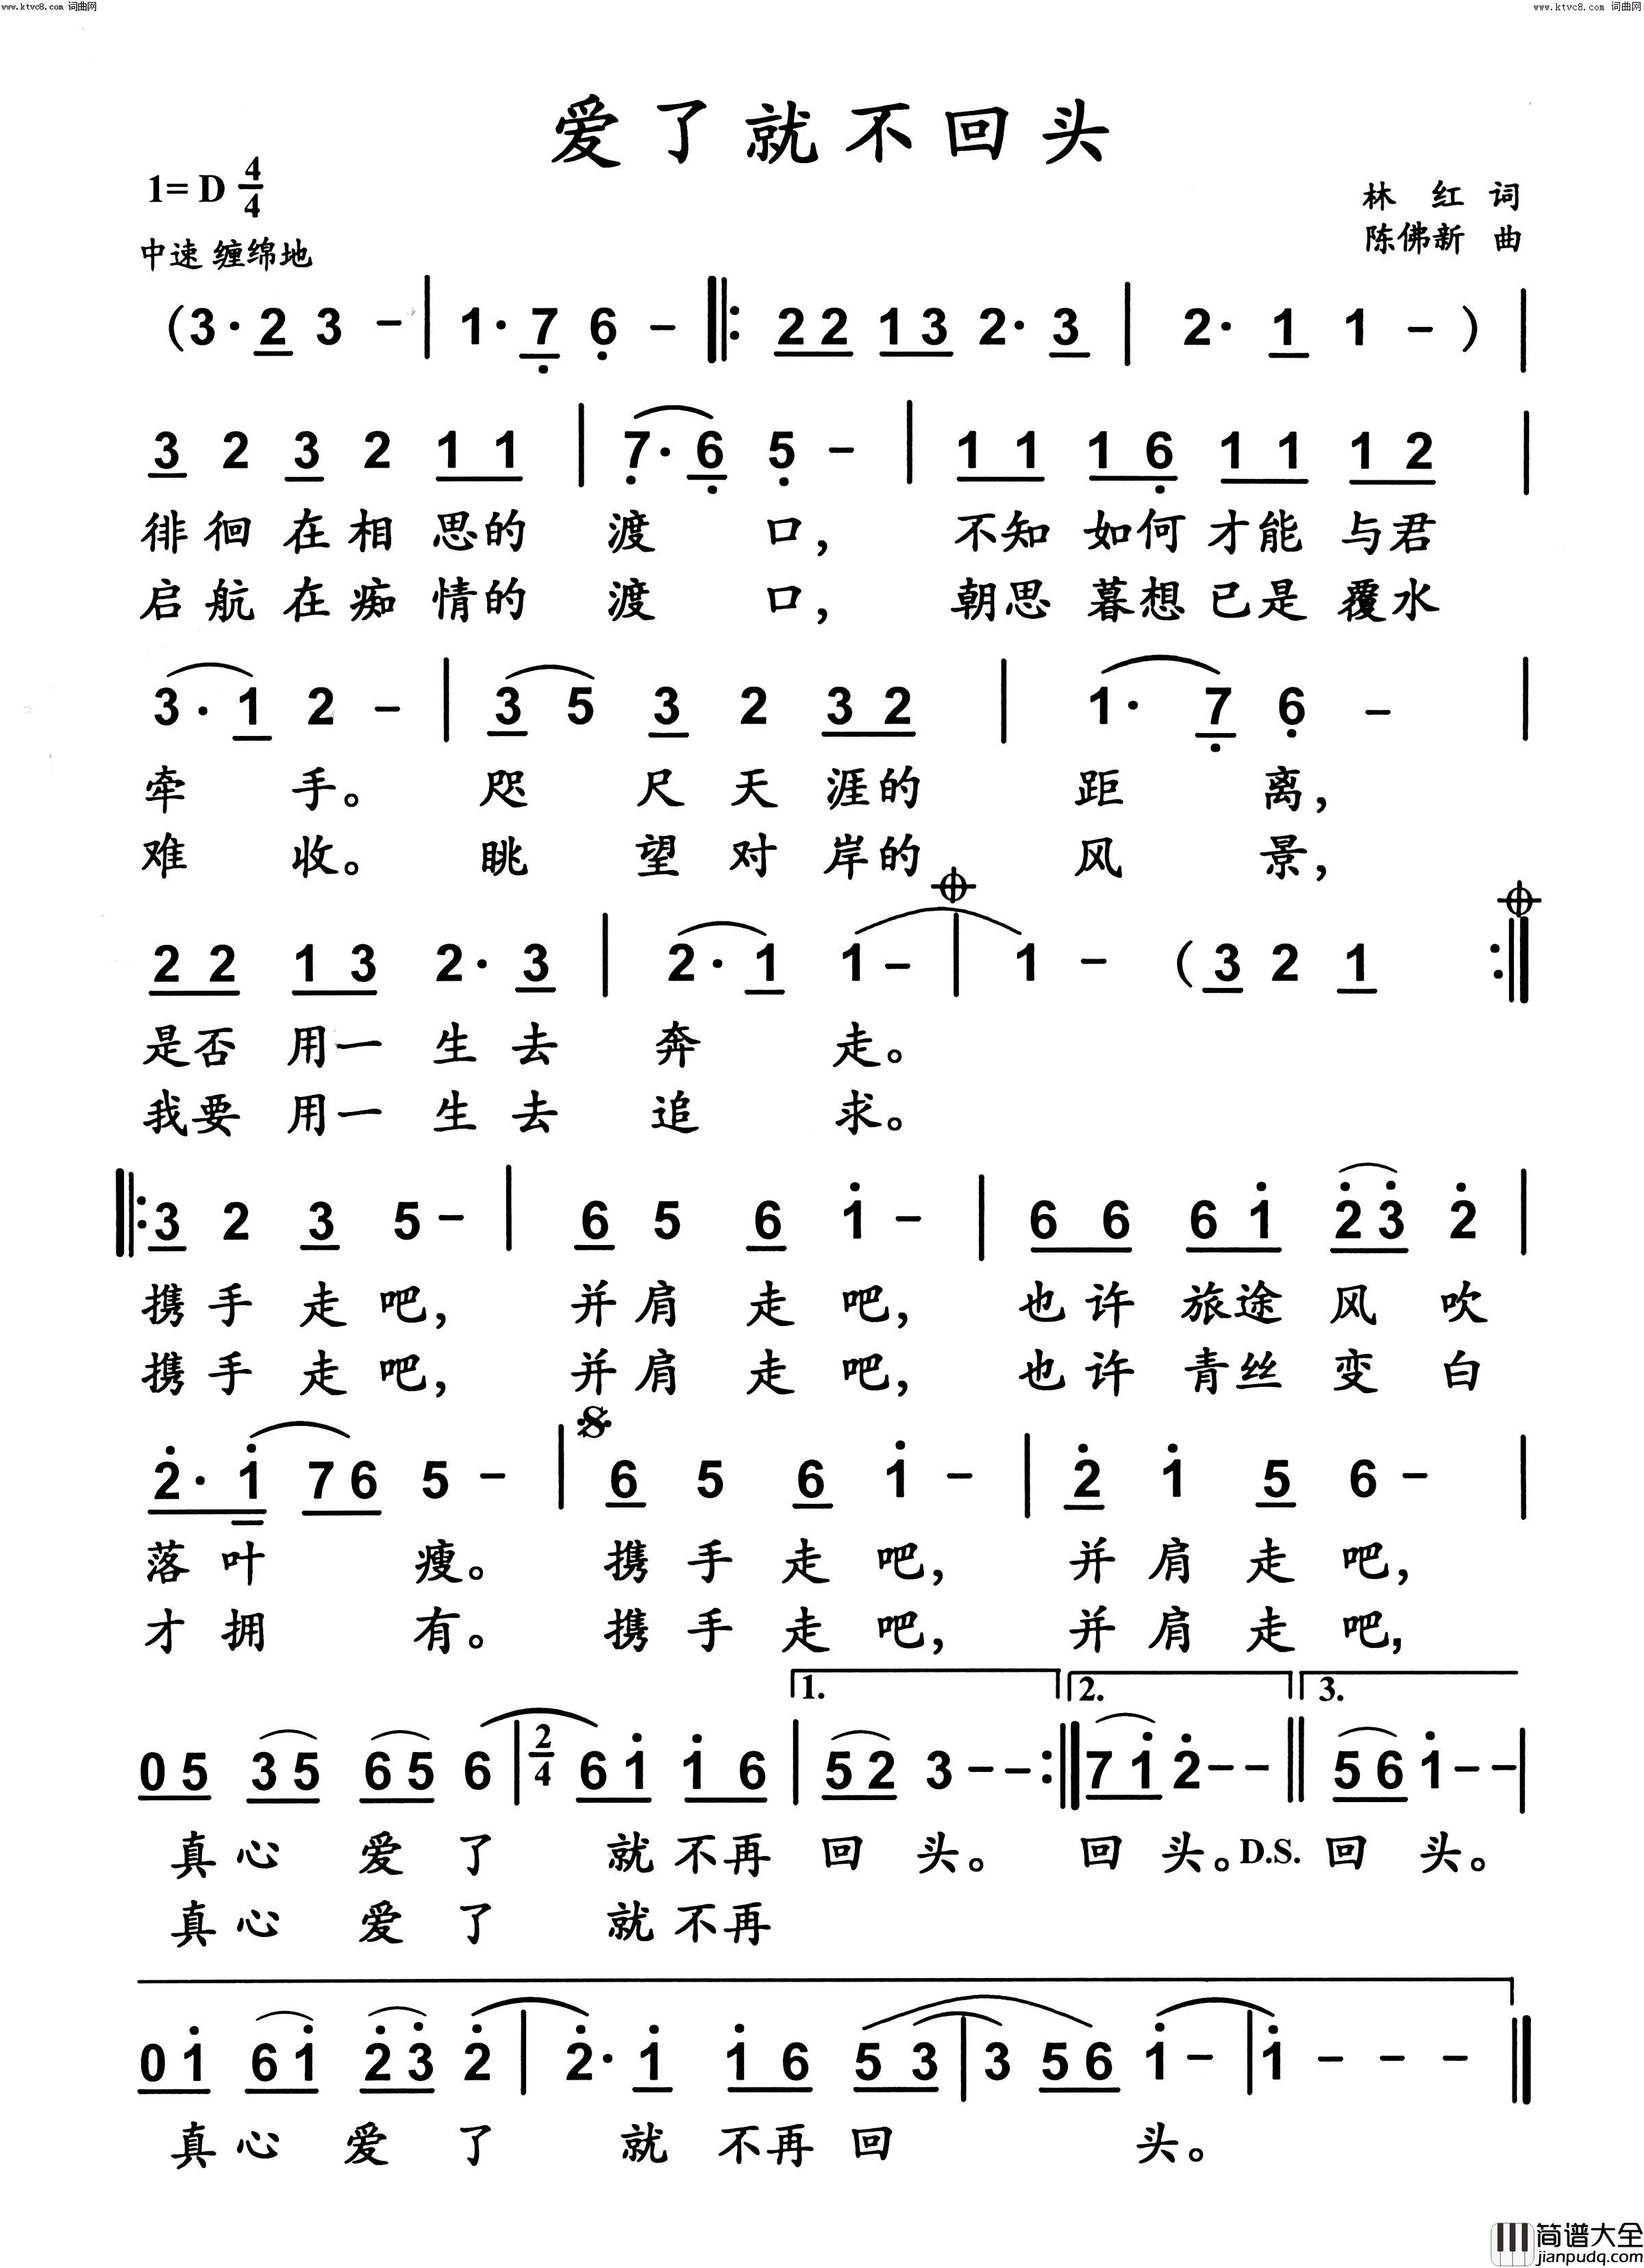 www.ktvc8.com 词曲网
www.ktvc8.com 词曲网
爱了就不回头
1= D 4/4
林 红 词
中速 缠绵地
陈佛新 曲
(3·2 3 -|1·7 6 -‖:22 13 2·3|2·1 1 -)|
3 2 3 2 11|7·6 5 -|11 16 11 12|
徘徊在相思的渡口，不知如何才能与君
启航在痴情的渡口，朝思暮想已是覆水
3·1 2 -|3 5 3 2 32|1·7 6 -|
牵手。咫尺天涯的距离，
难收。眺望对岸的风景，
22 13 2·3|2·1 1-|1 - (3 2 1 :‖
是否用一生去奔走。
我要用一生去追求。
‖:3 2 3 5-|6 5 6 1-|66 61 23 2|
携手走吧，并肩走吧，也许旅途风吹
携手走吧，并肩走吧，也许青丝变白
2·1 76 5 -|6 5 6 1-|2 1 5 6-|
落叶瘦。携手走吧，并肩走吧，
才拥有。携手走吧，并肩走吧，
1. 2. 3.
05 35 65 6|2/4 61 16|52 3--:‖71 2--‖56 1--|
真心爱了就不再回头。回头。D.S.回头。
真心爱了就不再
01 61 23 2|2·1 16 53|3 56 1-|1 - - -‖
真心爱了就不再回头。
简谱大全
jianpudq.com